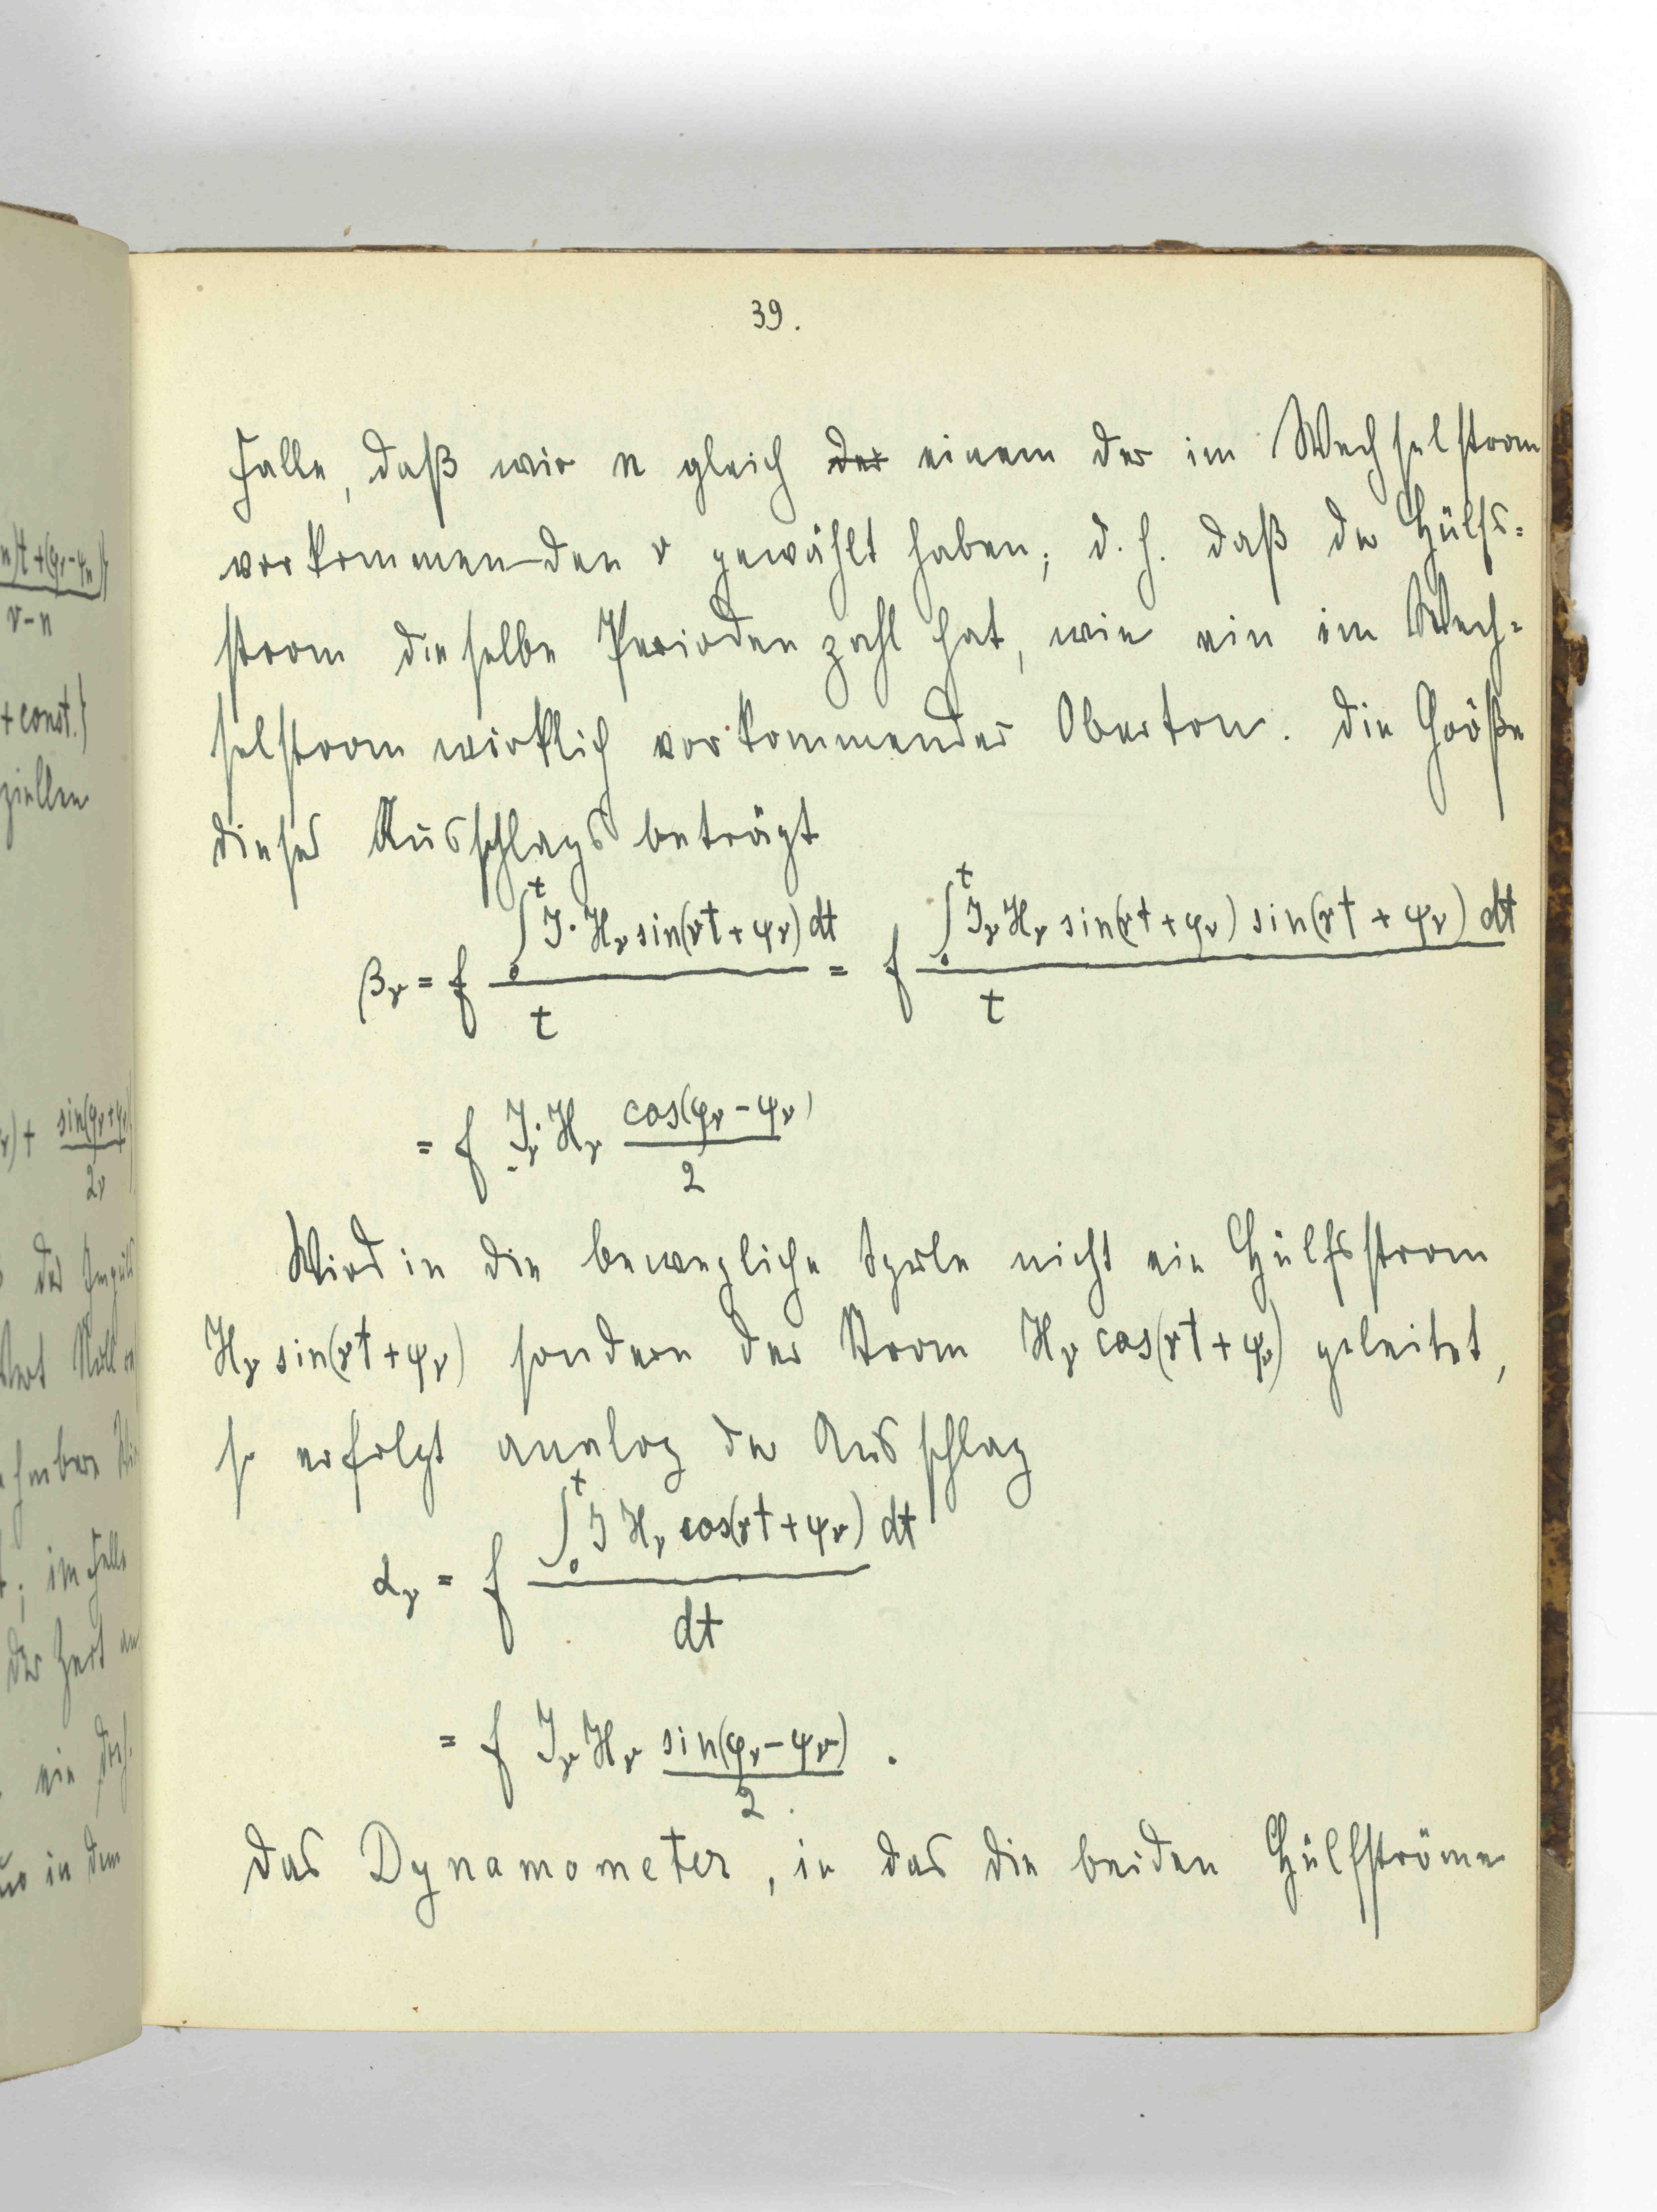 39.
Falle, daß wir n gleich der einem der im Wechselstrom
vorkommenden ν gewählt haben; d. h. daß der Hülfs-
strom dieselbe Periodenzahl hat, wie ein im Wech-
selstrom wirklich vorkommender Oberton. Die Größe
dieses Ausschlags beträgt
βν = f ∫₀ᵗ J·Hν sin(νt + ψν) dt / t = f ∫₀ᵗ Jν Hν sin(νt + φν) sin(νt + ψν) dt / t
= f Jν·Hν cos(φν − ψν) / 2
Wird in die bewegliche Spule nicht ein Hülfsstrom
Hν sin(νt + ψν) sondern der Strom Hν cos(νt + ψν) geleitet,
so erfolgt analog der Ausschlag
αν = f ∫₀ᵗ J Hν cos(νt + ψν) dt / dt
= f Jν Hν sin(φν − ψν) / 2 .
Das Dynamometer, in das die beiden Hülfströme
n)t + (φν − ψn)}
ν − n
+ const.}
ziellen
ν) + sin(φν + ψν)
2ν
; im Falle
der Zeit
ein
in dem